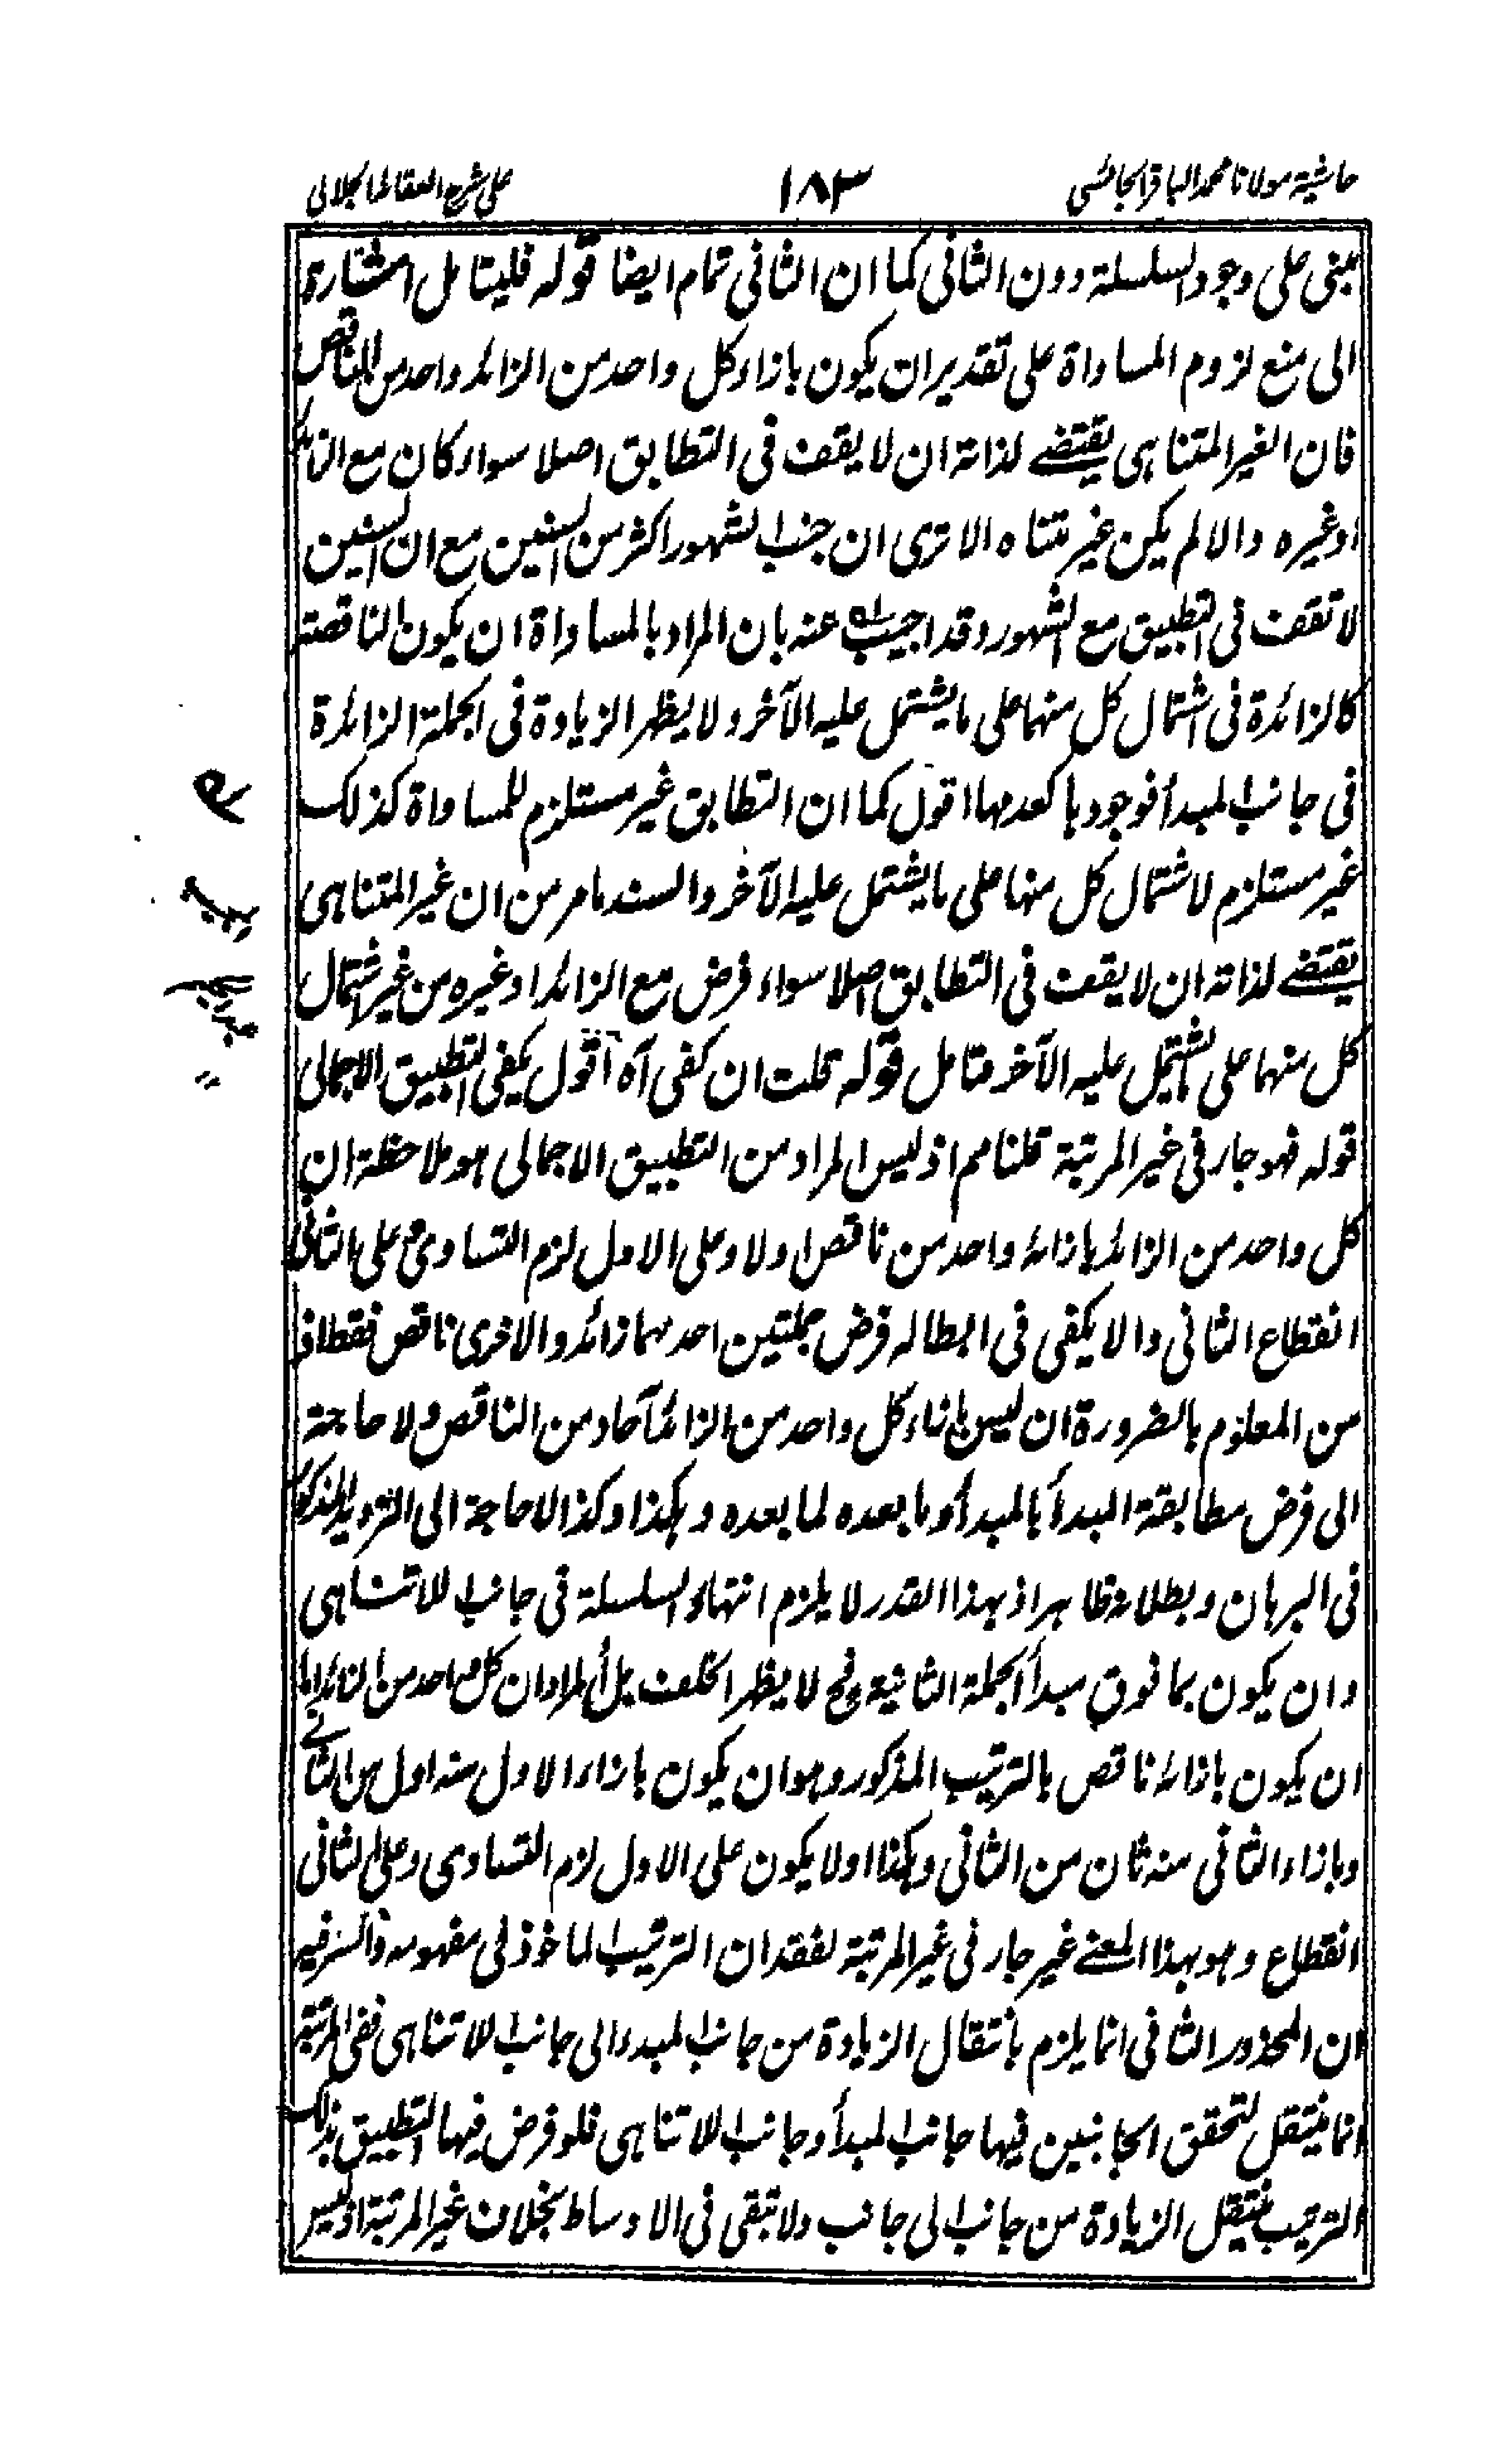 حاشية مولانا محمد الباقر الجائسى ١٨٣ على شرح العقائد الجلالى
مبنى على وجود السلسلة دون الثانى كما ان الثانى تمام ايضا قوله فليتامل اشارة
الى منع لزوم المساواة على تقدير ان يكون بازاء كل واحد من الزائد واحد من الناقص
فان الغير المتناهى يقتضے لذاته ان لا يقف فى التطابق اصلا سواء كان مع الزائد
او غيره والا لم يكن غير متناه الا ترى ان جنب الشهور اكثر من السنين مع ان السنين
لا تقف فى التطبيق مع الشهور وقد اجيب عنه بان المراد بالمساواة ان يكون الناقصة
كالزائدة فى اشتمال كل منهما على ما يشتمل عليه الآخر ولا يظهر الزيادة فى الجملة الزائدة
فى جانب المبدأ فوجودها كعدمها اقول كما ان التطابق غير مستلزم للمساواة كذلك
غير مستلزم لاشتمال كل منهما على ما يشتمل عليه الآخر والسند ما مر من ان غير المتناهى
يقتضے لذاته ان لا يقف فى التطابق اصلا سواء فرض مع الزائد او غيره من غير اشتمال
كل منهما على ما يشتمل عليه الآخر فتامل قوله قلت ان كفى آه اقول يكفى التطبيق الاجمالى
قوله فهو جار فى غير المرتبة قلنا مم اذ ليس المراد من التطبيق الاجمالى هو ملاحظة ان
كل واحد من الزائد بازائه واحد من ناقص اولا وعلى الاول لزم التساوى و على الثانى
انقطاع الثانى والا يكفى فى ابطاله فرض جملتين احدهما زائد والاخرى ناقص فقط اذ
من المعلوم بالضرورة ان ليس بازاء كل واحد من الزائد آحاد من الناقص ولا حاجة
الى فرض مطابقة المبدأ بالمبدأ وما بعده لما بعده وهكذا وكذا لا حاجة الى الترديد المذكور
فى البرهان وبطلانه ظاهر اذ بهذا القدر لا يلزم انتهاء السلسلة فى جانب اللاتناهى
وان يكون بما فوق مبدأ الجملة الثانية وح لا يظهر الخلف بل المراد ان كل واحد من الزائد اما
ان يكون بازائه ناقص بالترتيب المذكور وهو ان يكون بازاء الاول منه اول من الثانے
وبازاء الثانى منه ثان من الثانى وهكذا اولا يكون على الاول لزم التساوى وعلى الثانى
انقطاع وهو بهذا المعنے غير جار فى غير المرتبة لفقدان الترتيب الماخوذ فى مفهومه والسر فيه
ان المحذور الثانى انما يلزم بانتقال الزيادة من جانب المبدء الى جانب اللاتناهى ففى المرتبة
انما ينتقل لتحقق الجانبين فيها جانب المبدأ وجانب اللاتناهى فلو فرض فيها التطبيق بذلك
الترتيب ينتقل الزيادة من جانب الى جانب ولا تبقى فى الاوساط بخلاف غير المرتبة اذ ليس